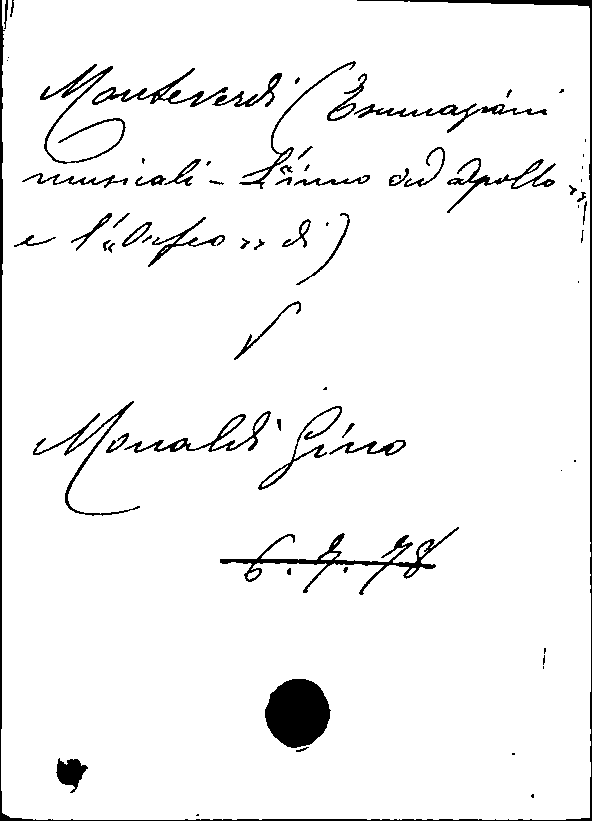 Monteverdi (Esumazioni
musicali - L'"inno ad Apollo"
e l'"Orfeo" di)
V
Monaldi Gino
6. 7. 78